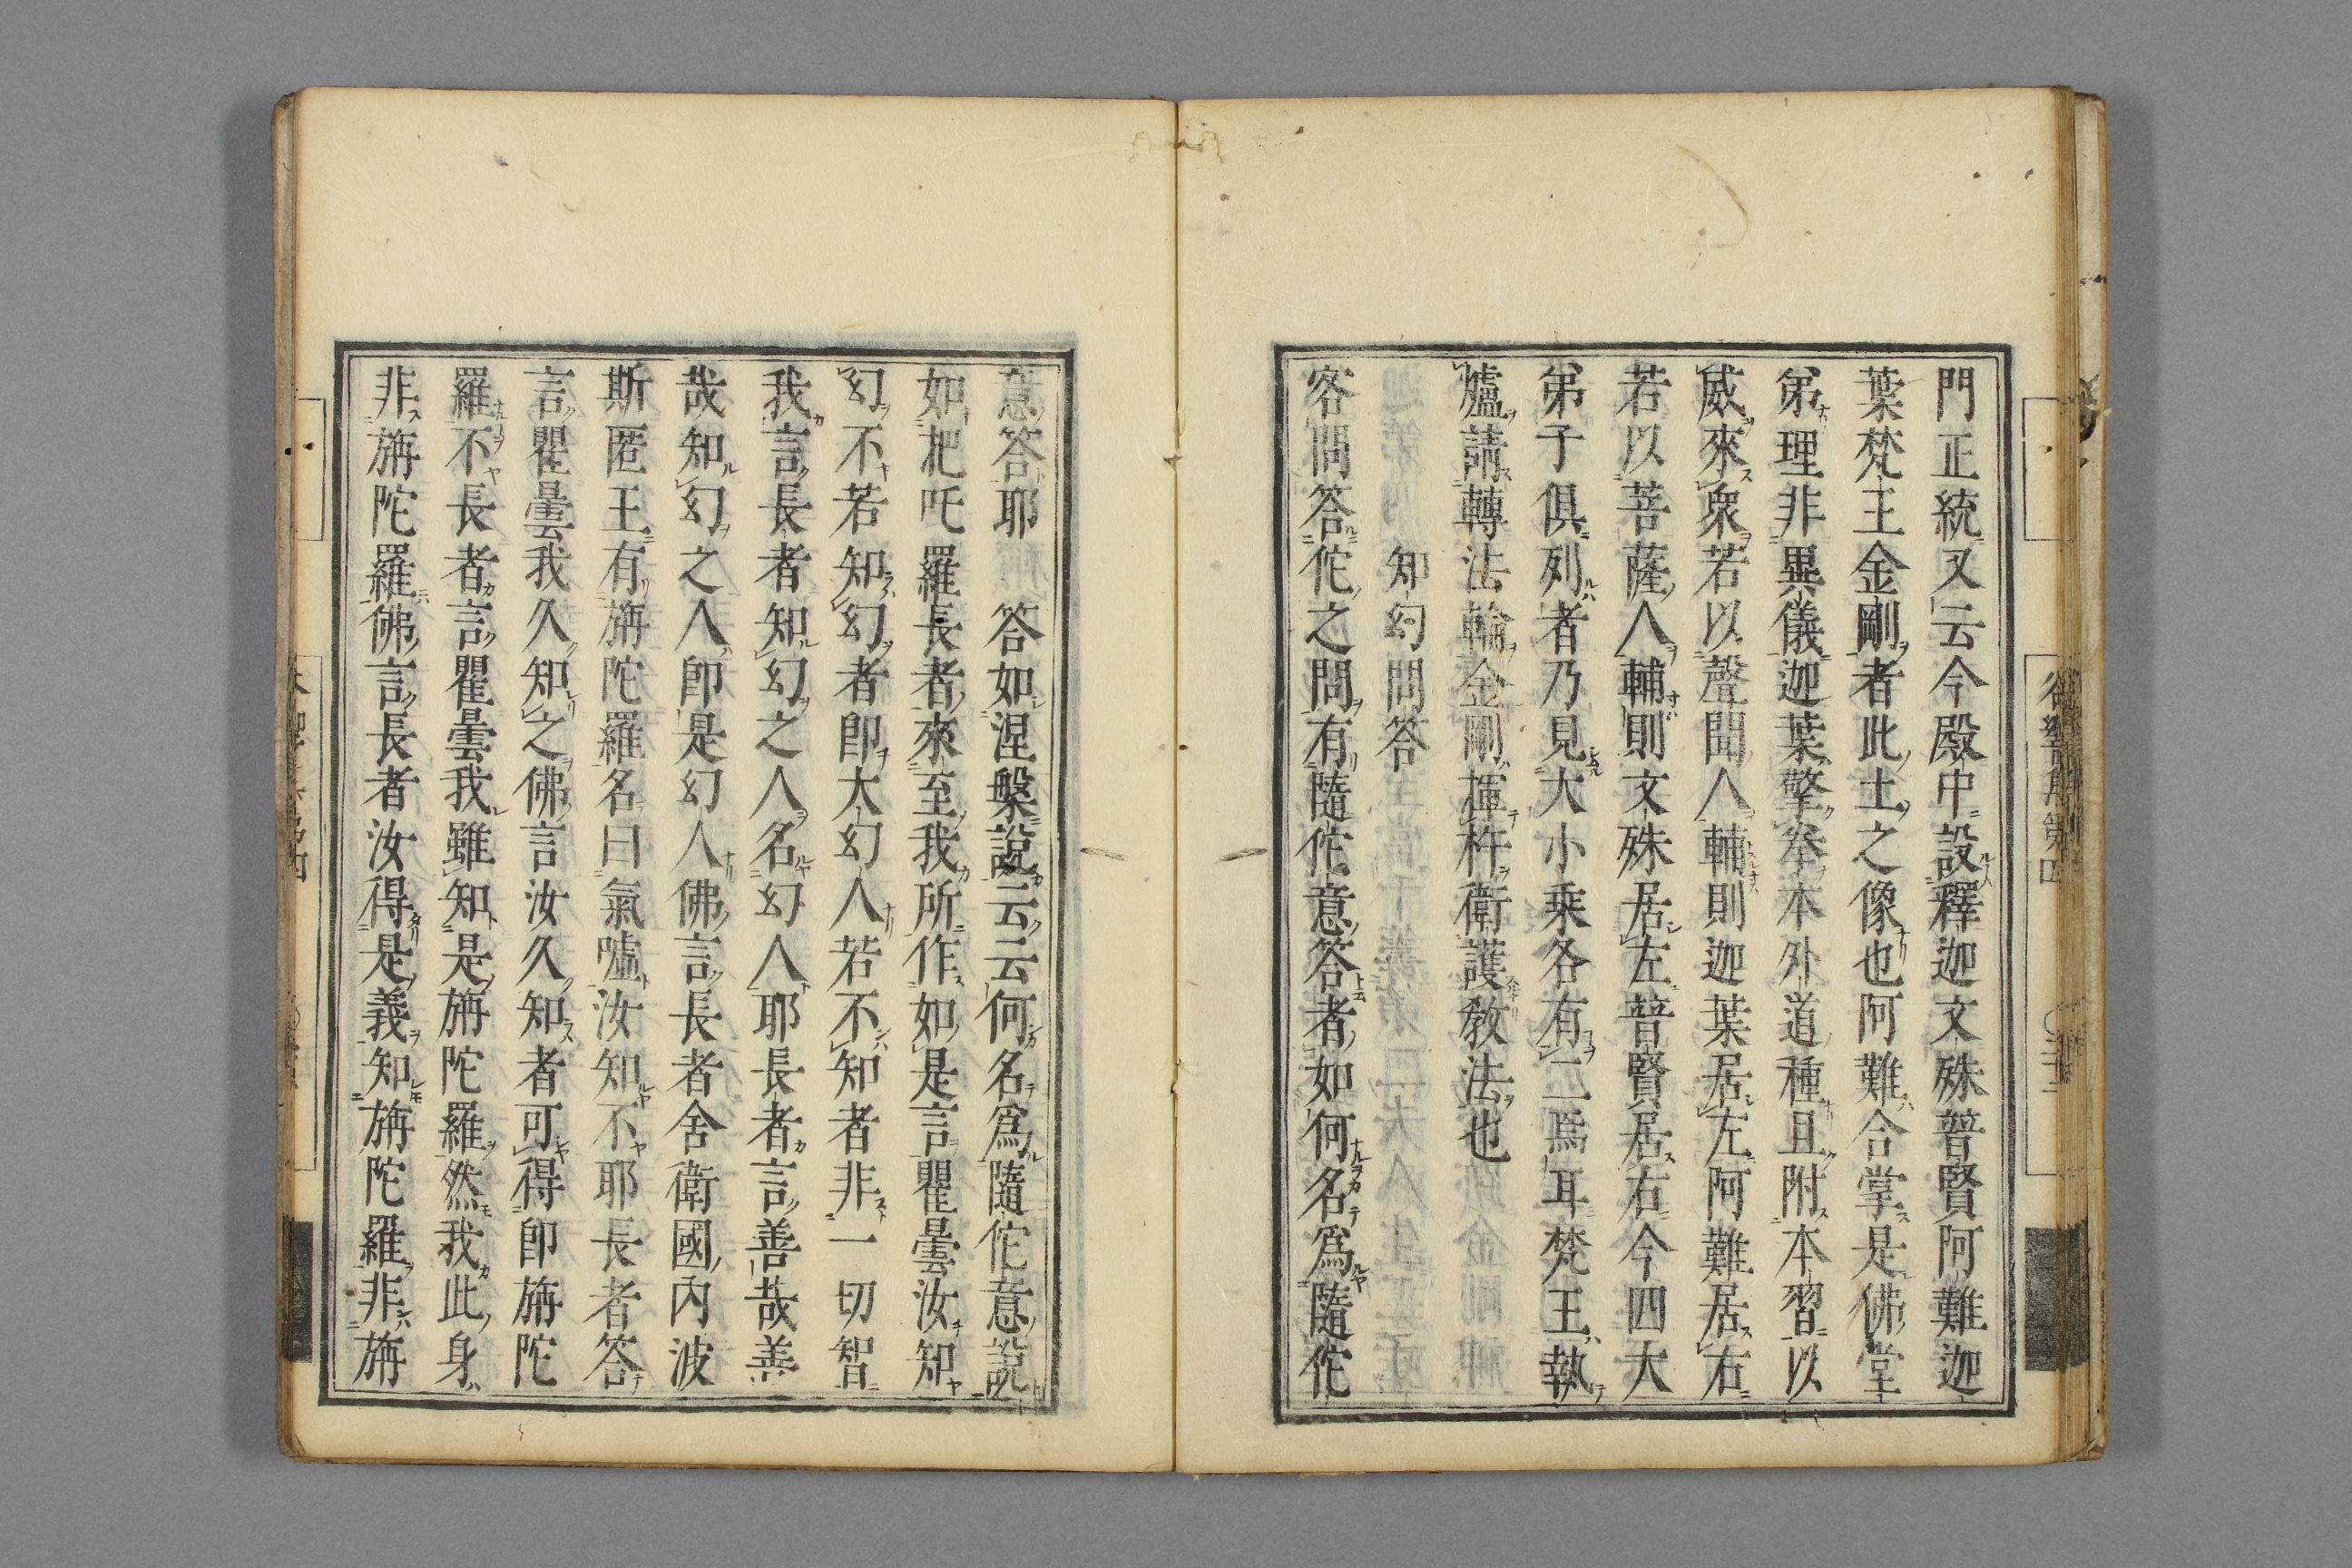 門正統又云今殿中設釋迦文殊普賢阿難迦
葉梵王金剛者此土之像也阿難合掌是佛堂
弟理非異儀迦葉擎拳本外道種且附本習以
威來衆若以聲聞人輔則迦葉居左阿難居右
若以菩薩人輔則文殊居左普賢居右今四大
弟子俱列者乃見大小乘各有二焉耳梵王執
爐請轉法輪金剛揮杵衛護教法也
知幻問答
客問答佗之問有隨佗意答者如何名爲隨佗
意答耶 答如涅槃說云云何名爲隨佗意說
如杷吒羅長者來至我所作如是言瞿曇汝知
幻不若知幻者卽大幻人若不知者非一切智
我言長者知幻之人名幻人耶長者言善哉善
哉知幻之人卽是幻人佛言長者舍衛國內波
斯匿王有旃陀羅名曰氣噓汝知不耶長者答
言瞿曇我久知之佛言汝久知者可得卽旃陀
羅不長者言瞿曇我雖知是旃陀羅然我此身
非旃陀羅佛言長者汝得是義知旃陀羅非旃